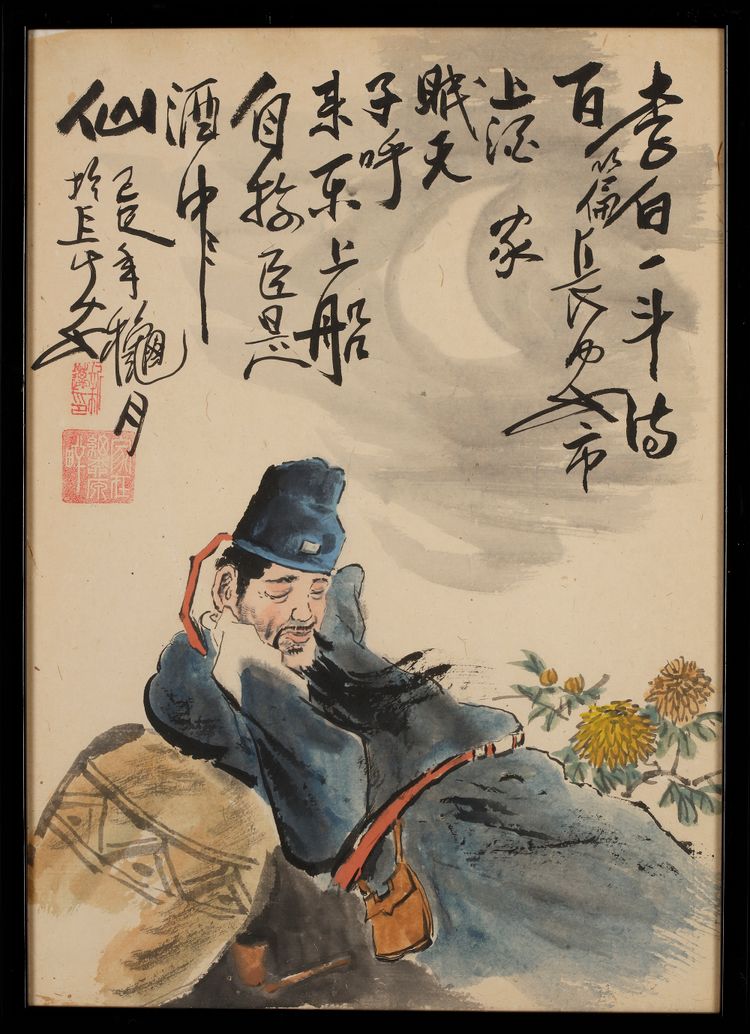 李白一斗诗
百篇長安市
上酒家
眠天
子呼
来不上船
自称臣是
酒中
仙
己巳年龝月